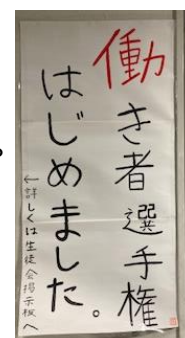 働き者選手権
はじめました。
←詳しくは生徒会掲示板へ